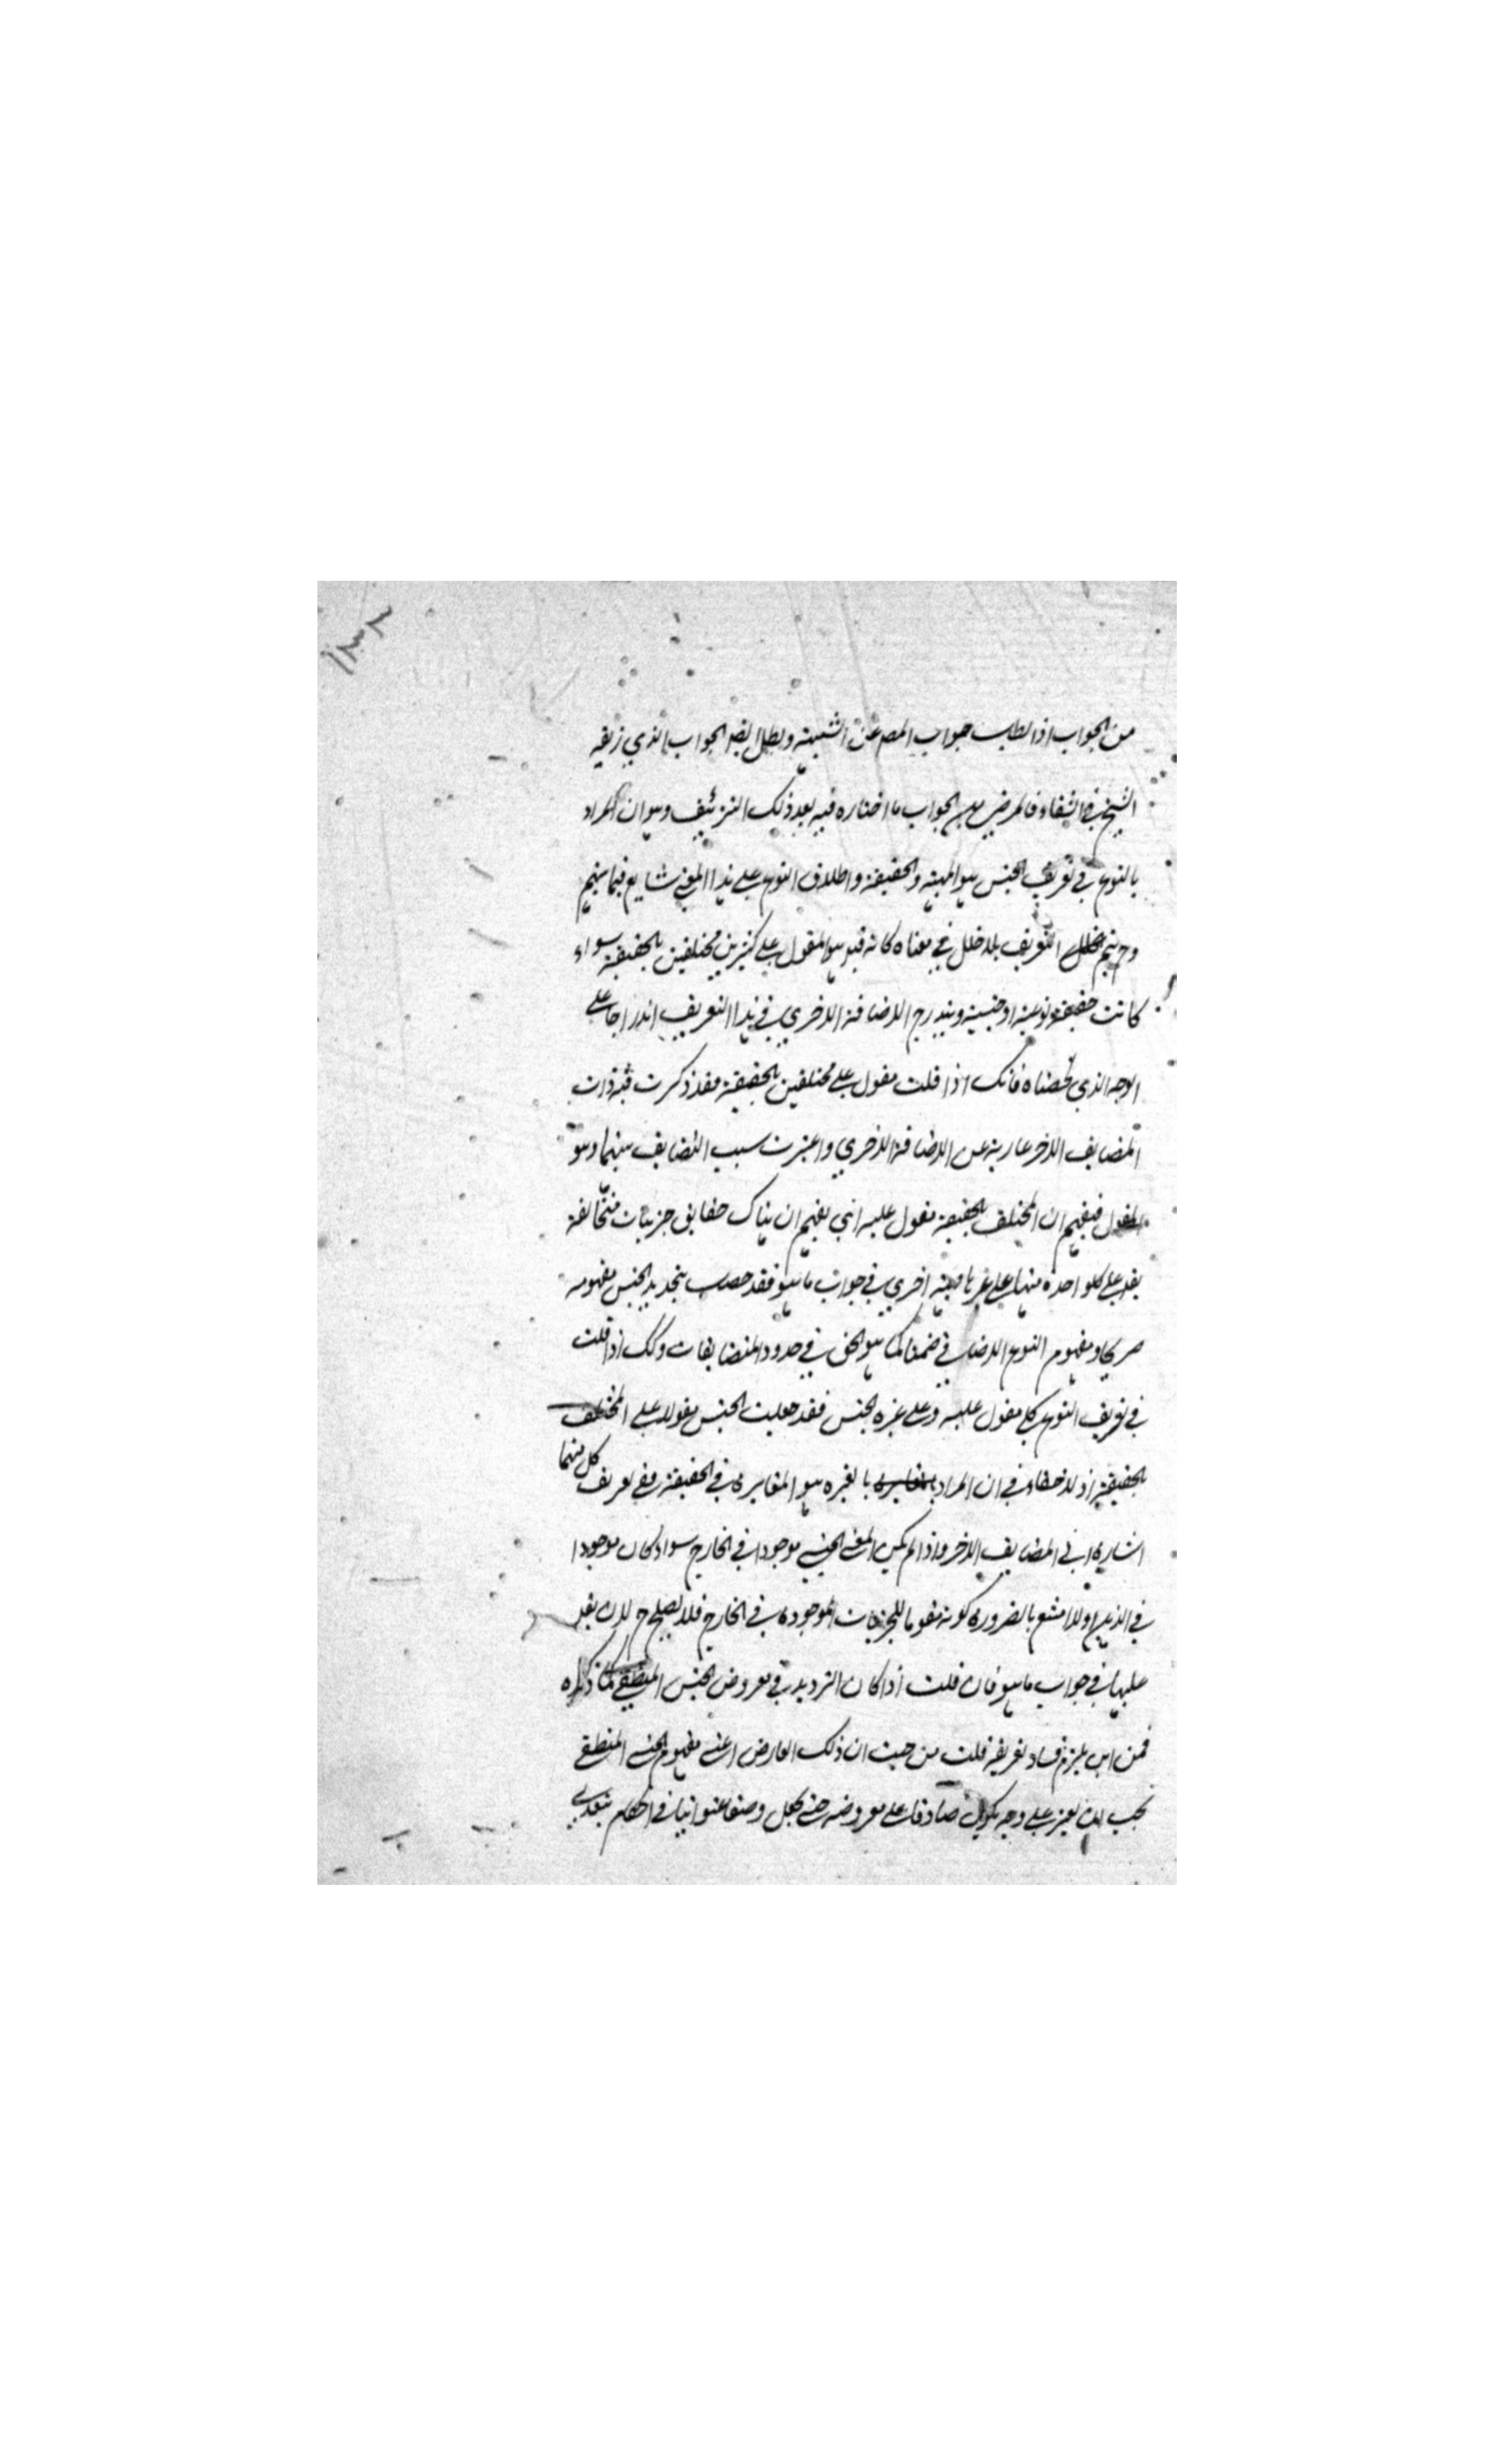 من الجواب اذا بطلت جواب المص عن الشبهة وبطل بقى الجواب الذي زيفه
الشيخ في الشفاء فالمرضي من الجواب ما اختاره فيه بعد ذلك التزييف وهو ان المراد
بالنوع في تعريف الجنس هو المهية والحقيقة واطلاق النوع على هذا المعنى شايع فيما بينهم
وح يتم التعريف بلا خلل في معناه كانه قيل هو المقول على كثيرين مختلفين بالحقيقة سواء
كانت حقيقة نوعية او جنسية ويندرج الاضافة الاخري في هذا التعريف اندراجا على
الوجه الذي لخصناه فانك اذا قلت مقول على مختلفين بالحقيقة فقد ذكرت فيه ذات
المضايف الاخر عارية عن الاضافة الاخري واعتبرت سبب التضايف بينهما وهو
المقول فيفهم ان المختلف بالحقيقة مقول عليه اي يفهم ان هناك حقايق جزئيات متخالفة
يقال على كلواحدة منها على غيرها مهية اخري في جواب ما هو فقد حصلت بتحديد الجنس مفهومه
صريحا ومفهوم النوع الاضافي ضمنا كما هو الحق في حدود المتضايفات وكك اذا قلت
في تعريف النوع كلي مقول عليه وعلى غيره الجنس فقد جعلت الجنس مقولا على المختلف
بالحقيقة اذ لا خفاء في ان المراد بالغيره هو المغايرة في الحقيقة ففي تعريف كل منهما
اشارة الى المضايف الاخر واذا لم يكن المعنى الجنسي موجودا في الخارج سواء كان موجودا
في الذهن اولا امتنع بالضرورة كونه مقوما للجزئيات الموجودة في الخارج فلا يصلح ح لان يقال
عليها في جواب ما هو فان قلت اذا كان الترديد في معروض الجنس المنطقي كما ذكره
فمن اين يلزم فساد تعريفه قلت من حيث ان ذلك العارض اعني مفهوم الجنس المنطقي
يجب ان يعتبر على وجه يكون صادقا على معروضه حتى يجعل وصفا عنوانيا في احكام يتعدى